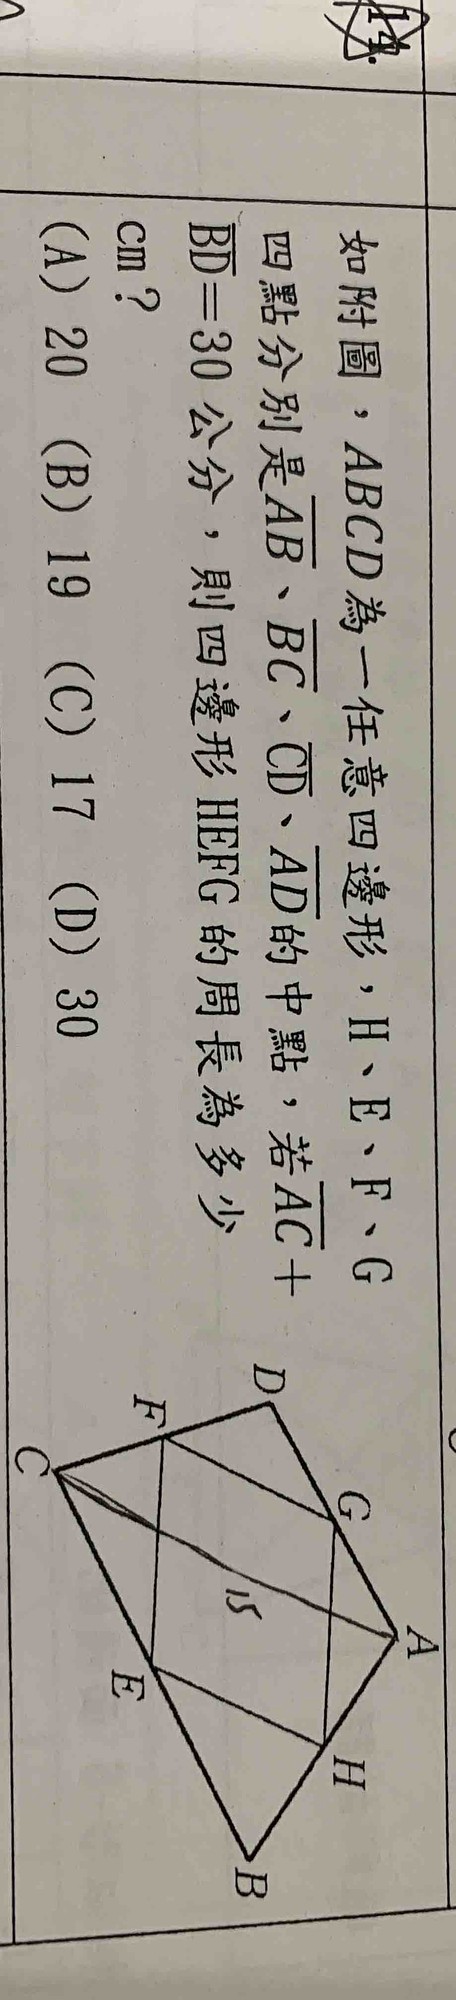 14.
如附圖，ABCD為一任意四邊形，H、E、F、G
四點分別是AB、BC、CD、AD的中點，若AC＋
BD＝30公分，則四邊形HEFG的周長為多少
cm？
(A) 20 (B) 19 (C) 17 (D) 30
A
G
H
D
15
B
F
E
C